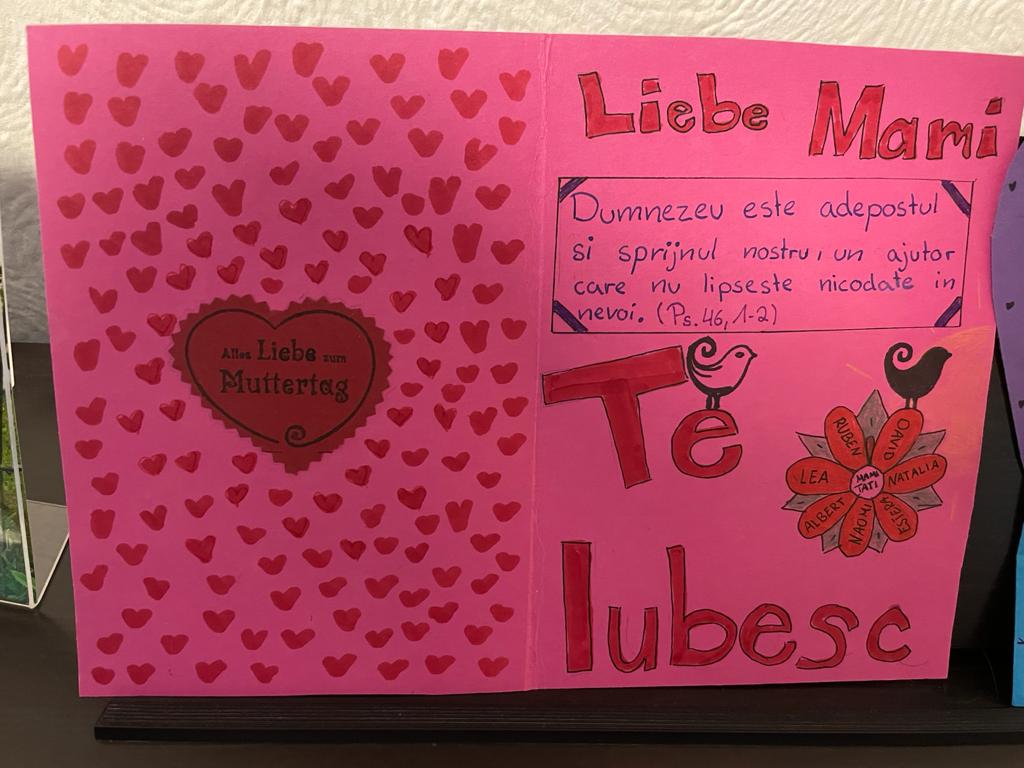 Alles Liebe zum
Muttertag
Liebe Mami
Dumnezeu este adepostul
si sprijnul nostru, un ajutor
care nu lipseste nicodate in
nevoi. (Ps. 46, 1-2)
Te
RUBEN
DAVID
LEA
MAMI
TATI
NATALIA
ALBERT
NAOMI
ESTERA
Iubesc